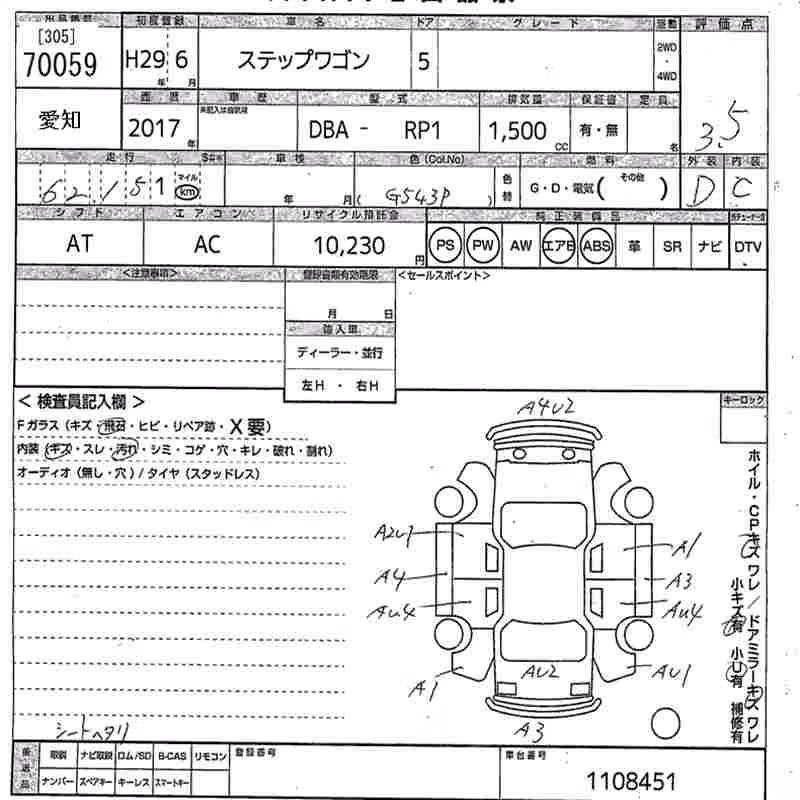 出品番号 初度登録 車名 ドア グレード 駆動 評価点
[305]
70059 H29年 6月 ステップワゴン 5 2WD・4WD 3.5
愛知
西暦 車歴 型式 排気量 保証書 定員
2017年 未記入は自家用 DBA - RP1 1,500cc 有・無 名
走行 車検 色(Col.No) 燃料 外装 内装
62,151 マイル km 年 月 (G543P) 色替 G・D・電気(その他) D C
シフト エアコン リサイクル預託金 純正装備品
AT AC 10,230円 PS PW AW エアB ABS 革 SR ナビ DTV
<注意事項> 登録書類有効期限 <セールスポイント>
月 日
輸入車
ディーラー・並行
左H ・ 右H
<検査員記入欄> キーロック
Fガラス(キズ・飛石・ヒビ・リペア跡・X要)
内装(キズ・スレ・汚れ・シミ・コゲ・穴・キレ・破れ・割れ)
オーディオ(無し・穴)/タイヤ(スタッドレス)
A4U2
A2U1 A1
A4 A3
AU4 AU4
A1 AU2 AU1
A3
ホイル・CPキズ ワレ/ドアミラーキズ ワレ
小キズ有 小U有 補修有
シートヘタリ
後送品 取説 ナビ取説 ロム/SD B-CAS リモコン 登録番号 車台番号
ナンバー スペアキー キーレス スマートキー 1108451